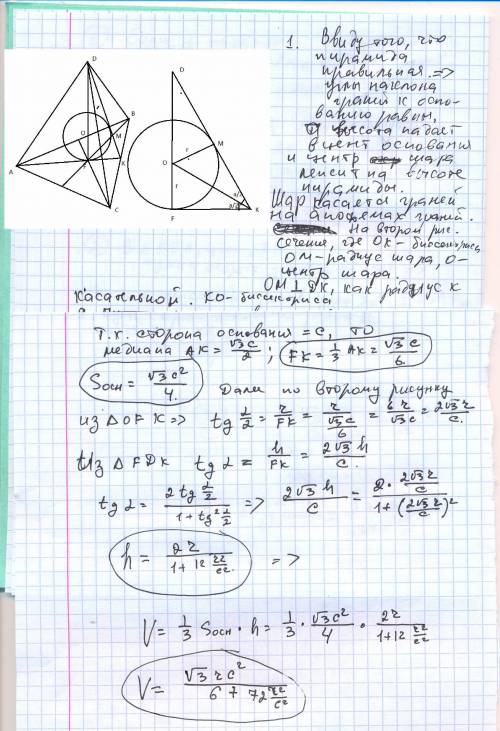 D
B
M
O
F
K
A
C
D
M
r
O
r
a/2
a/2
F
K
1. Ввиду того, что
пирамида
правильная =>
углы наклона
граней к осно-
ванию равны,
высота падает
в цент основания
и центр шара
лежит на высоте
пирамиды.
Шар касается граней
на апофемах граней.
На второй рис.
сечение, где OK - биссектриса,
OM - радиус шара, O -
центр шара.
OM ⊥ DK, как радиус к
касательной. KO - биссектриса
Т.к. сторона основания = c, то
медиана AK = √3c/2 ; FK = 1/3 AK = √3c/6
Sосн = √3c²/4. Далее по второму рисунку
из △OFK => tg α/2 = r/FK = r/(√3c/6) = 6r/√3c = 2√3r/c.
Из △FDK tg α = h/FK = 2√3h/c.
tg α = 2tg α/2 / (1 + tg² α/2) => 2√3h/c = 2·(2√3r/c) / (1 + (2√3r/c)²)
h = 2r / (1 + 12 r²/c²) =>
V = 1/3 Sосн · h = 1/3 · √3c²/4 · 2r / (1 + 12 r²/c²)
V = √3rc² / (6 + 72 r²/c²)